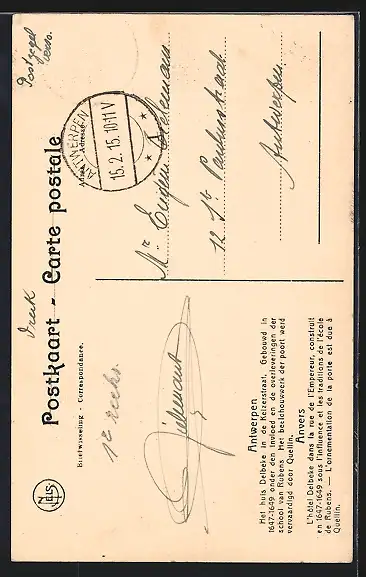 Postzegel
verso.
Druk
Postkaart - Carte postale
Adres - Adresse
ANTWERPEN
15.2.15.10-11V
Briefwisseling - Correspondance.
1e reeks.
Mr. Eugeen
12 St. Paulusstraat
Antwerpen
Nels
Antwerpen
Het huis Delbeke in de Keizerstraat. Gebouwd in
1647-1649 onder den invloed en de overleveringen der
school van Rubens. Het beelchouwwerk der poort werd
vervaardigd door Quellin.
Anvers
L'hôtel Delbeke dans la rue de l'Empereur, construit
en 1647-1649 sous l'influence et les traditions de l'école
de Rubens. — L'ornementation de la porte est due à
Quellin.